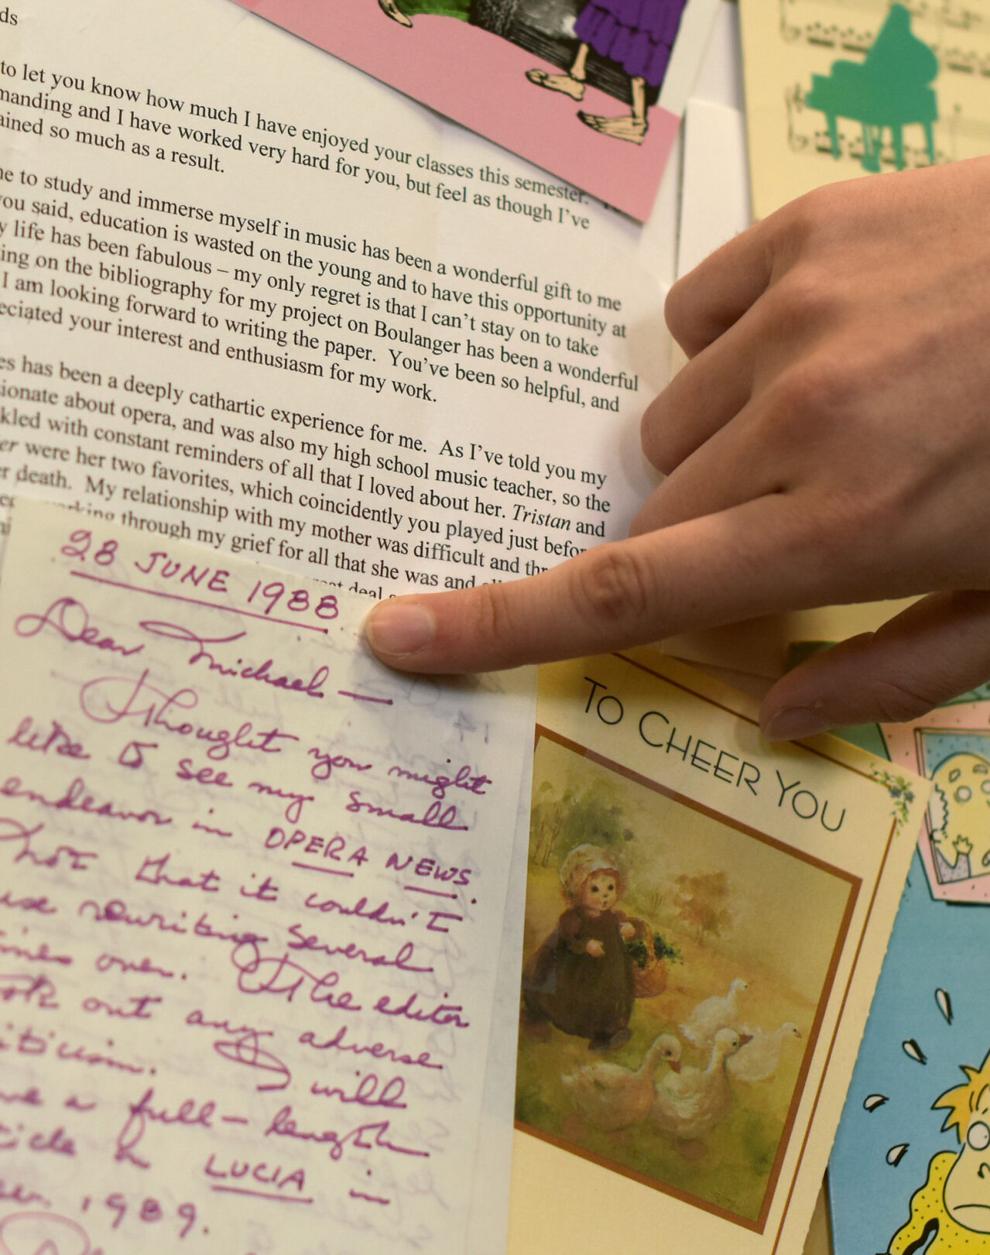 ds
to let you know how much I have enjoyed your classes this semester.
manding and I have worked very hard for you, but feel as though I've
ained so much as a result.
ne to study and immerse myself in music has been a wonderful gift to me
you said, education is wasted on the young and to have this opportunity at
y life has been fabulous – my only regret is that I can't stay on to take
ing on the bibliography for my project on Boulanger has been a wonderful
I am looking forward to writing the paper. You've been so helpful, and
eciated your interest and enthusiasm for my work.
es has been a deeply cathartic experience for me. As I've told you my
sionate about opera, and was also my high school music teacher, so the
kled with constant reminders of all that I loved about her. Tristan and
er were her two favorites, which coincidently you played just befor
r death. My relationship with my mother was difficult and thr
working through my grief for all that she was and
great deal
28 JUNE 1988
Dear Michael —
Thought you might
like to see my small
endeavor in OPERA NEWS.
not that it couldn't
use rewriting several
mes over. The editor
out any adverse
iticism. I will
ve a full-length
ticle on LUCIA in
1989.
TO CHEER YOU